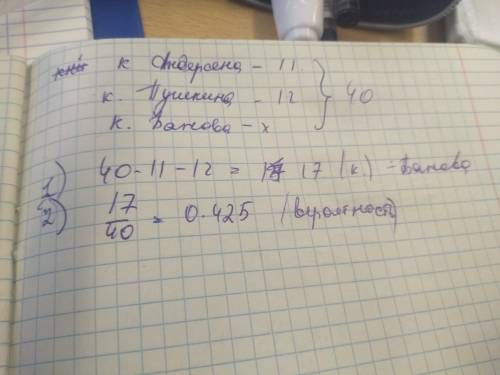 к Андерсена - 11
к. Пушкина - 12 } 40
к. Бажова - x
1) 40 - 11 - 12 = 17 (к.) - Бажова
2) 17/40 = 0.425 (вероятность)